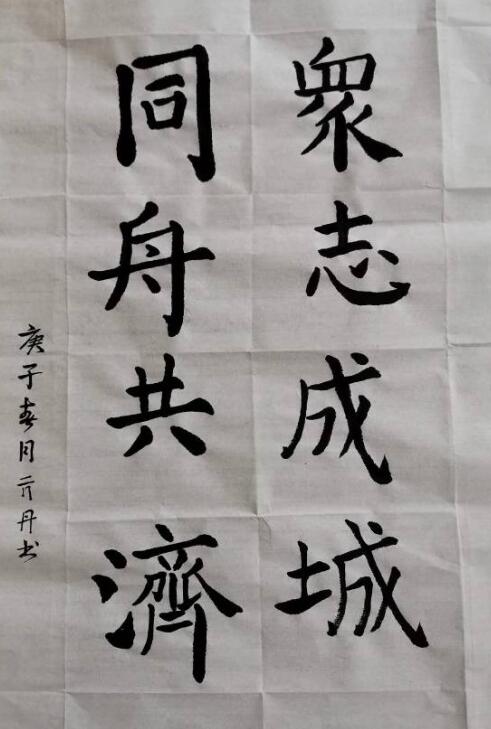 衆志成城
同舟共濟
庚子春月亓丹书